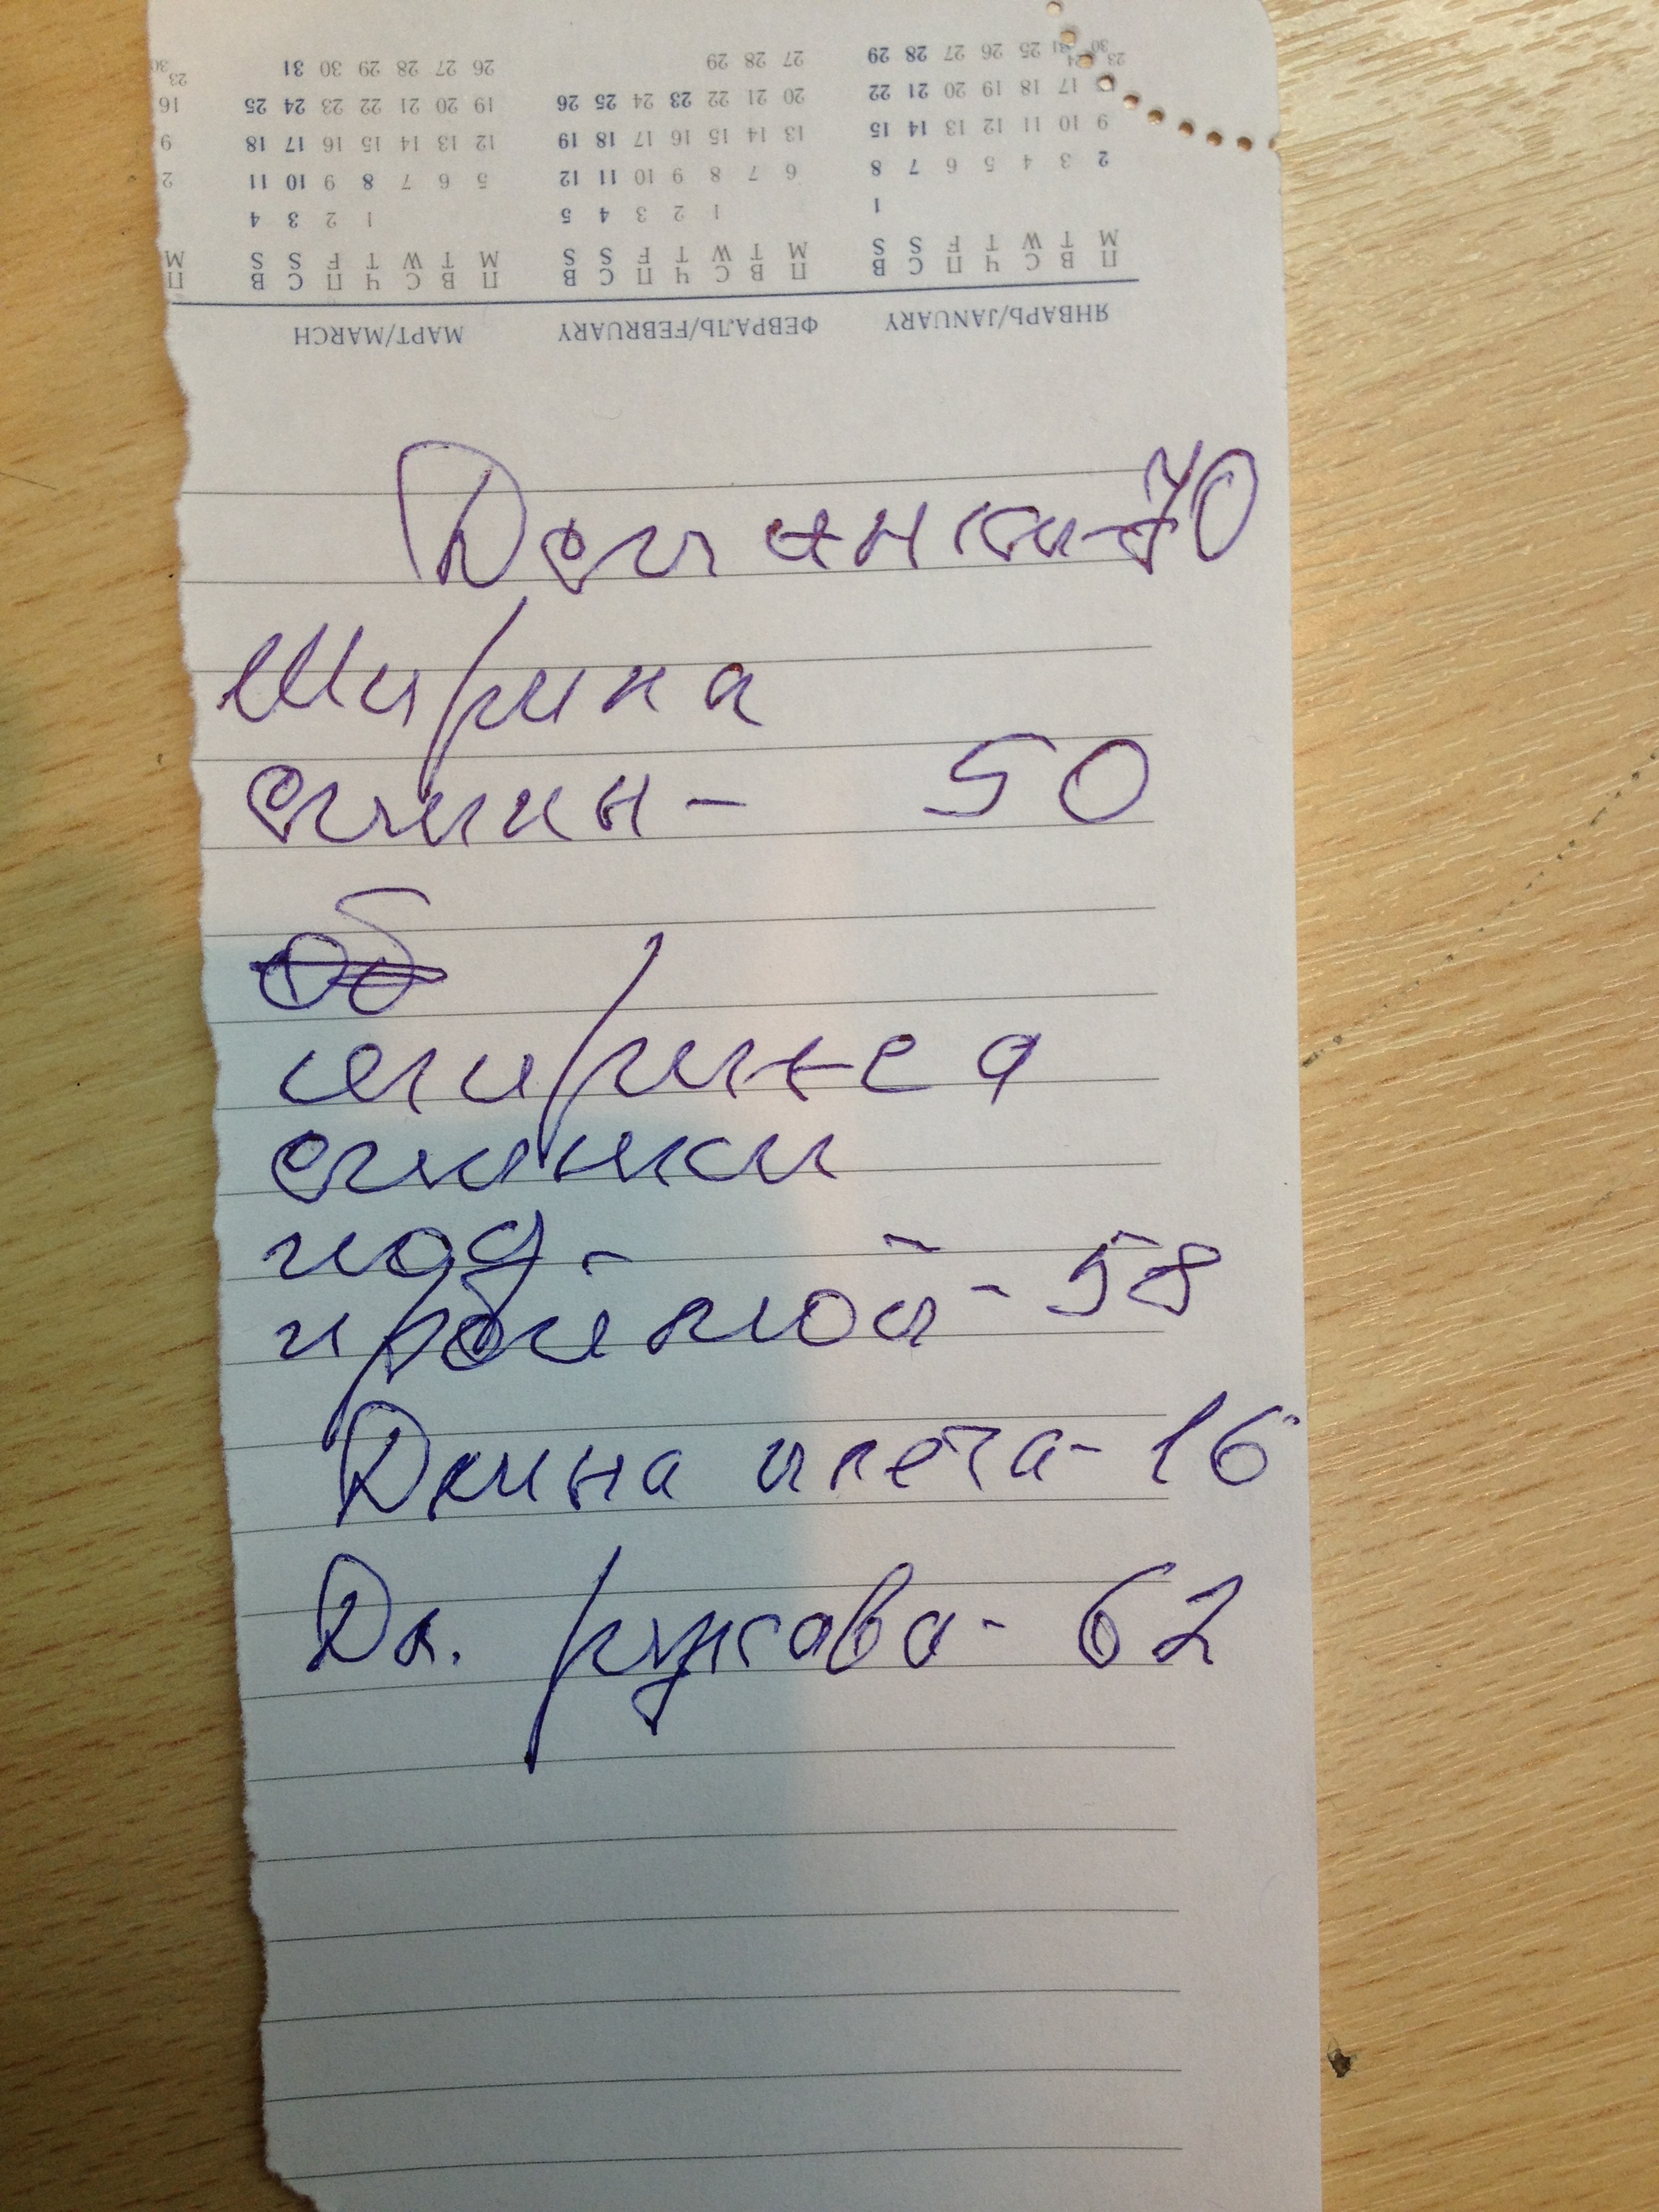 ЯНВАРЬ/JANUARY ФЕВРАЛЬ/FEBRUARY МАРТ/MARCH
П В С Ч П С В П В С Ч П С В П В С Ч П С В П
M T W T F S S M T W T F S S M T W T F S S M
1 1 2 3 4 5 1 2 3 4
2 3 4 5 6 7 8 6 7 8 9 10 11 12 5 6 7 8 9 10 11 2
9 10 11 12 13 14 15 13 14 15 16 17 18 19 12 13 14 15 16 17 18 9
17 18 19 20 21 22 20 21 22 23 24 25 26 19 20 21 22 23 24 25 16
23 24 25 26 27 28 29 27 28 29 26 27 28 29 30 31 23
30 31 30
70
Ширина
спин - 50
Об
ширинеа
спинки
под -
проймой - 58
Длина плеча - 16
Дл. рукава - 62